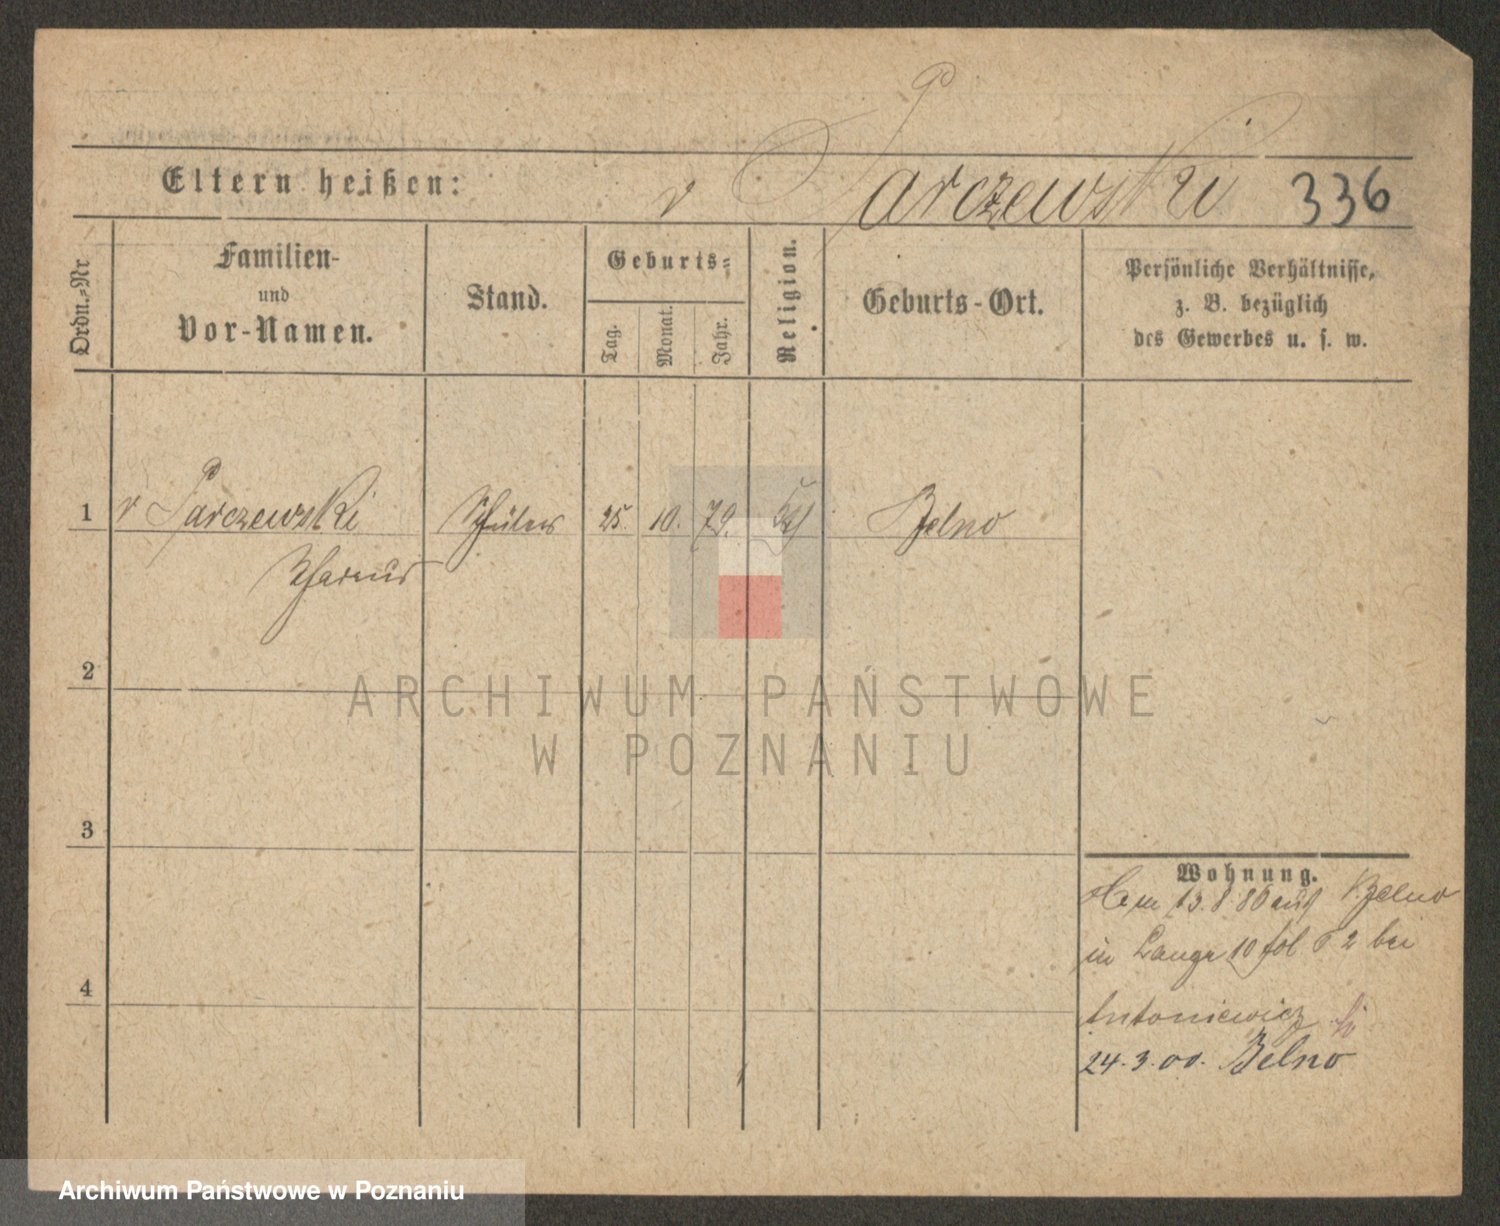 Eltern heißen: v Parczewski 336
Ordn.-Nr
Familien-
und
Vor-Namen.
Stand.
Geburts-
Tag.
Monat.
Jahr.
Religion.
Geburts-Ort.
Persönliche Verhältnisse,
z. B. bezüglich
des Gewerbes u. s. w.
1 v Parczewski Schüler 25. 10. 79. Belno
2
ARCHIWUM PAŃSTWOWE
W POZNANIU
3
4
Wohnung.
13. 8. 86 aus Belno
in Lange 10 bei
Antoniewicz
24. 3. 00. Belno
Archiwum Państwowe w Poznaniu